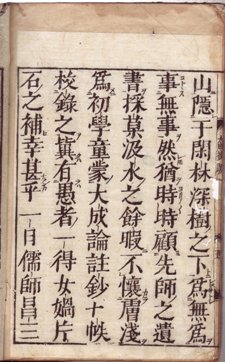 山隱于閑林深樹之下爲無爲
事無事然猶時時顧先師之遺
書採菓汲水之餘暇不懷膚淺
爲初學童蒙大成論註鈔十帙
校錄之冀有愚者一得女媧片
石之補幸甚乎一日儒師昌三